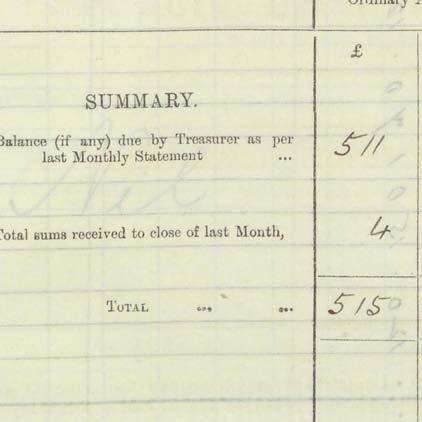 Ordinary
£
SUMMARY.
Balance (if any) due by Treasurer as per
last Monthly Statement ... 511
Total sums received to close of last Month, 4
TOTAL ... ... 515